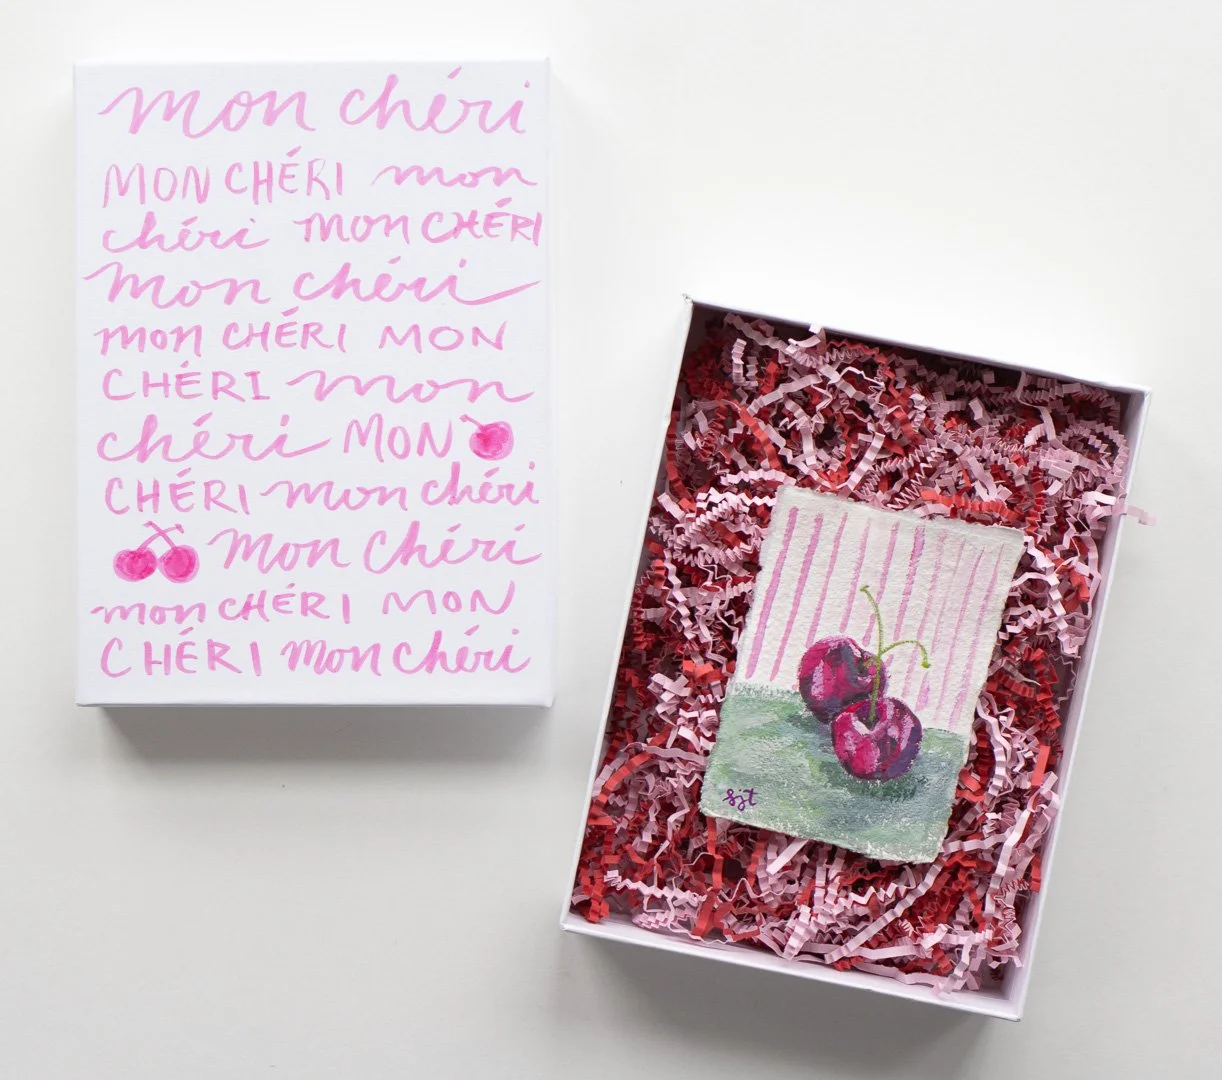 mon chéri
MON CHÉRI mon
chéri mon CHÉRI
mon chéri
mon CHÉRI MON
CHÉRI mon
chéri MON
CHÉRI mon chéri
mon chéri
mon CHÉRI MON
CHÉRI mon chéri
sjt